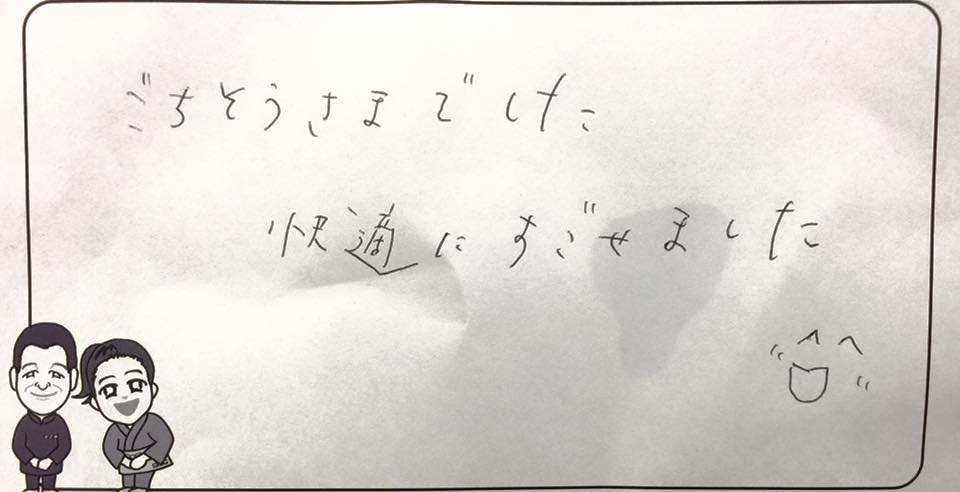 ごちそうさまでした
快適にすごせました